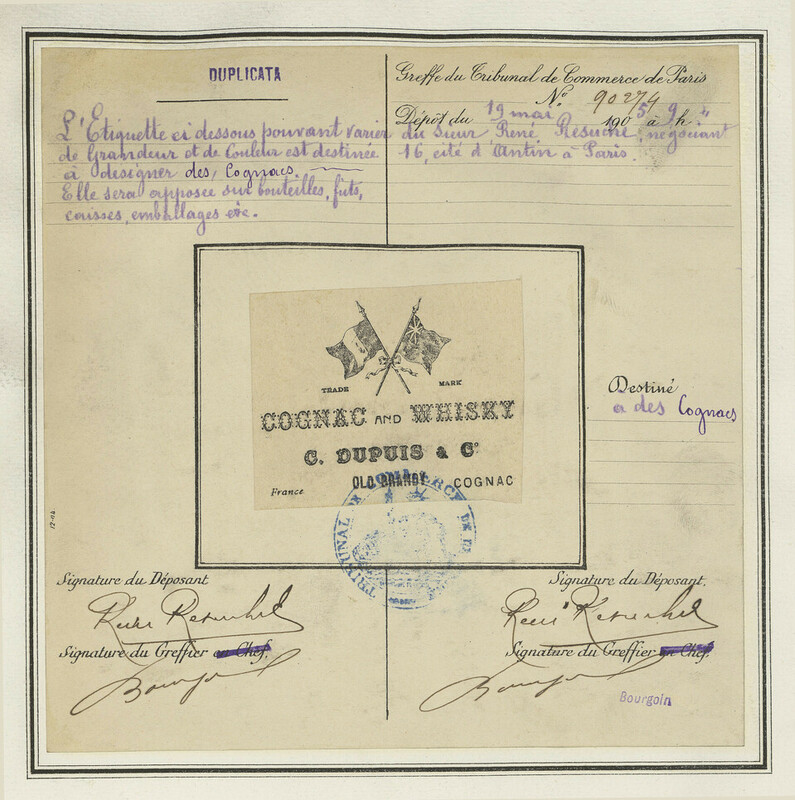 DUPLICATA
L'Etiquette ci dessous pouvant varier
de Grandeur et de Couleur est destinée
à designer des Cognacs.
Elle sera apposée sur bouteilles, futs,
caisses, emballages etc.
Greffe du Tribunal de Commerce de Paris
No. 90274
Dépôt du 19 mai 1905 à 9 h.
du Sieur René négociant
16, cité d'Antin à Paris.
TRADE MARK
COGNAC AND WHISKY
C. DUPUIS & Co
OLD BRANDY COGNAC
France
TRIBUNAL DE COMMERCE DE
Destiné
à des Cognacs
Signature du Déposant
Signature du Greffier en Chef.
Signature du Déposant.
Signature du Greffier en Chef.
Bourgoin